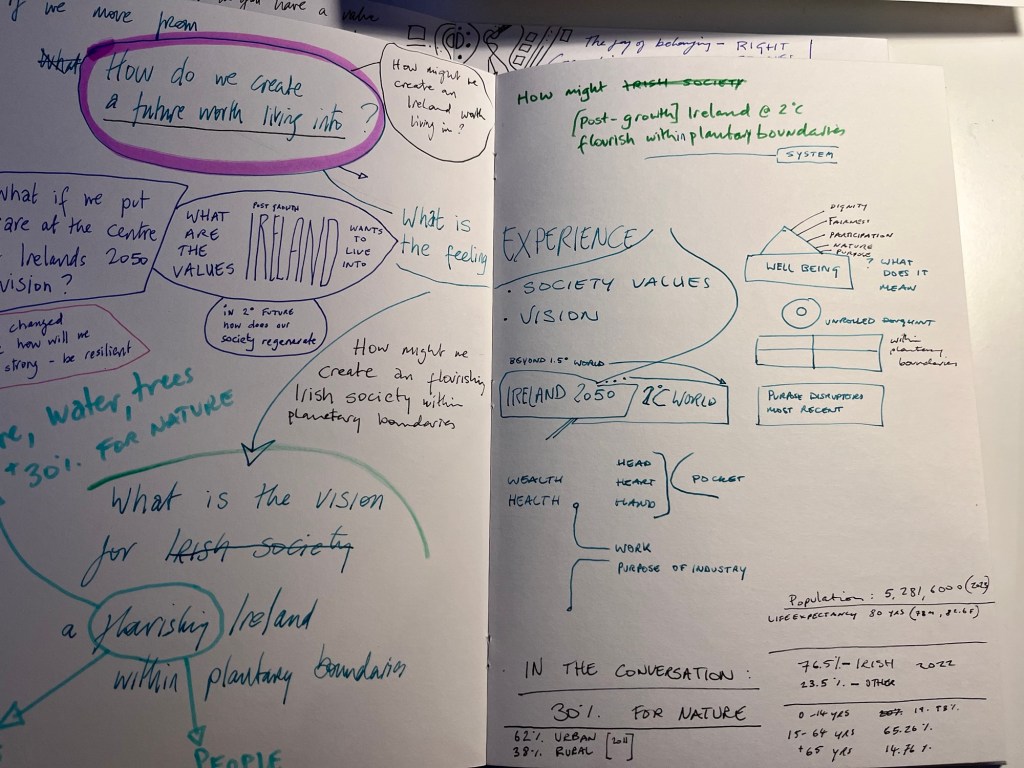 if we move from
you have a value
What
How do we create
a future worth living into?
How might we
create an
Ireland worth
living in?
What if we put
are at the centre
Irelands 2050
vision?
WHAT
ARE
THE
VALUES
POST GROWTH
IRELAND
WANTS
TO
LIVE
INTO
What is
the feeling
IN 2° FUTURE
how does our
society regenerate
changed
how will we
strong - be resilient
How might we
create an flourishing
Irish society within
planetary boundaries
re, water, trees
+ 30%. FOR NATURE
What is the vision
for IRISH SOCIETY
a flourishing Ireland
within planetary boundaries
PEOPLE
The joy of belonging - RIGHT
How might IRISH SOCIETY
[post-growth] Ireland @ 2°C
flourish within planetary boundaries
SYSTEM
EXPERIENCE
. SOCIETY VALUES
. VISION
DIGNITY
FAIRNESS
PARTICIPATION
NATURE
PURPOSE
WELL BEING
? WHAT
DOES IT
MEAN
UNROLLED DOUGHNUT
within
planetary
boundaries
BEYOND 1.5° WORLD
IRELAND 2050
2°C WORLD
PURPOSE DISRUPTORS
MOST RECENT
WEALTH
HEALTH
HEAD
HEART
HAND
POCKET
WORK
PURPOSE OF INDUSTRY
Population: 5,281,6000 (2023)
LIFE EXPECTANCY 80 YRS (78m, 82.6F)
. IN THE CONVERSATION:
76.5%-IRISH 2022
23.5%-OTHER
30%. FOR NATURE
62%. URBAN
38%. RURAL
0-14 YRS 19.98%
15-64 YRS 65.26%
+65 YRS 14.76%